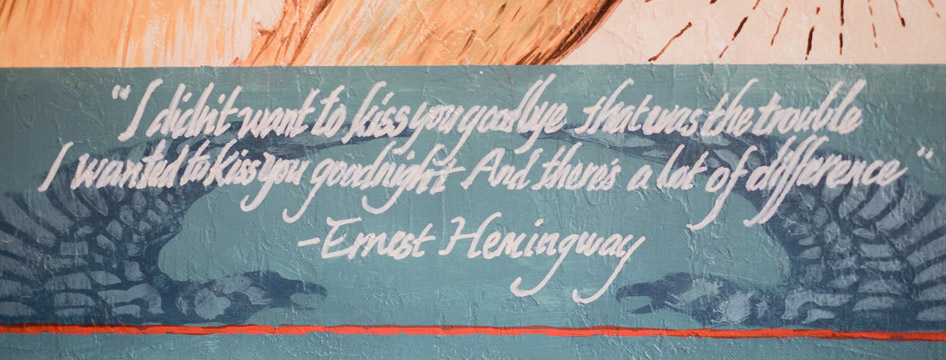 "I didn't want to kiss you goodbye that was the trouble
I wanted to kiss you goodnight And there's a lot of difference"
-Ernest Hemingway